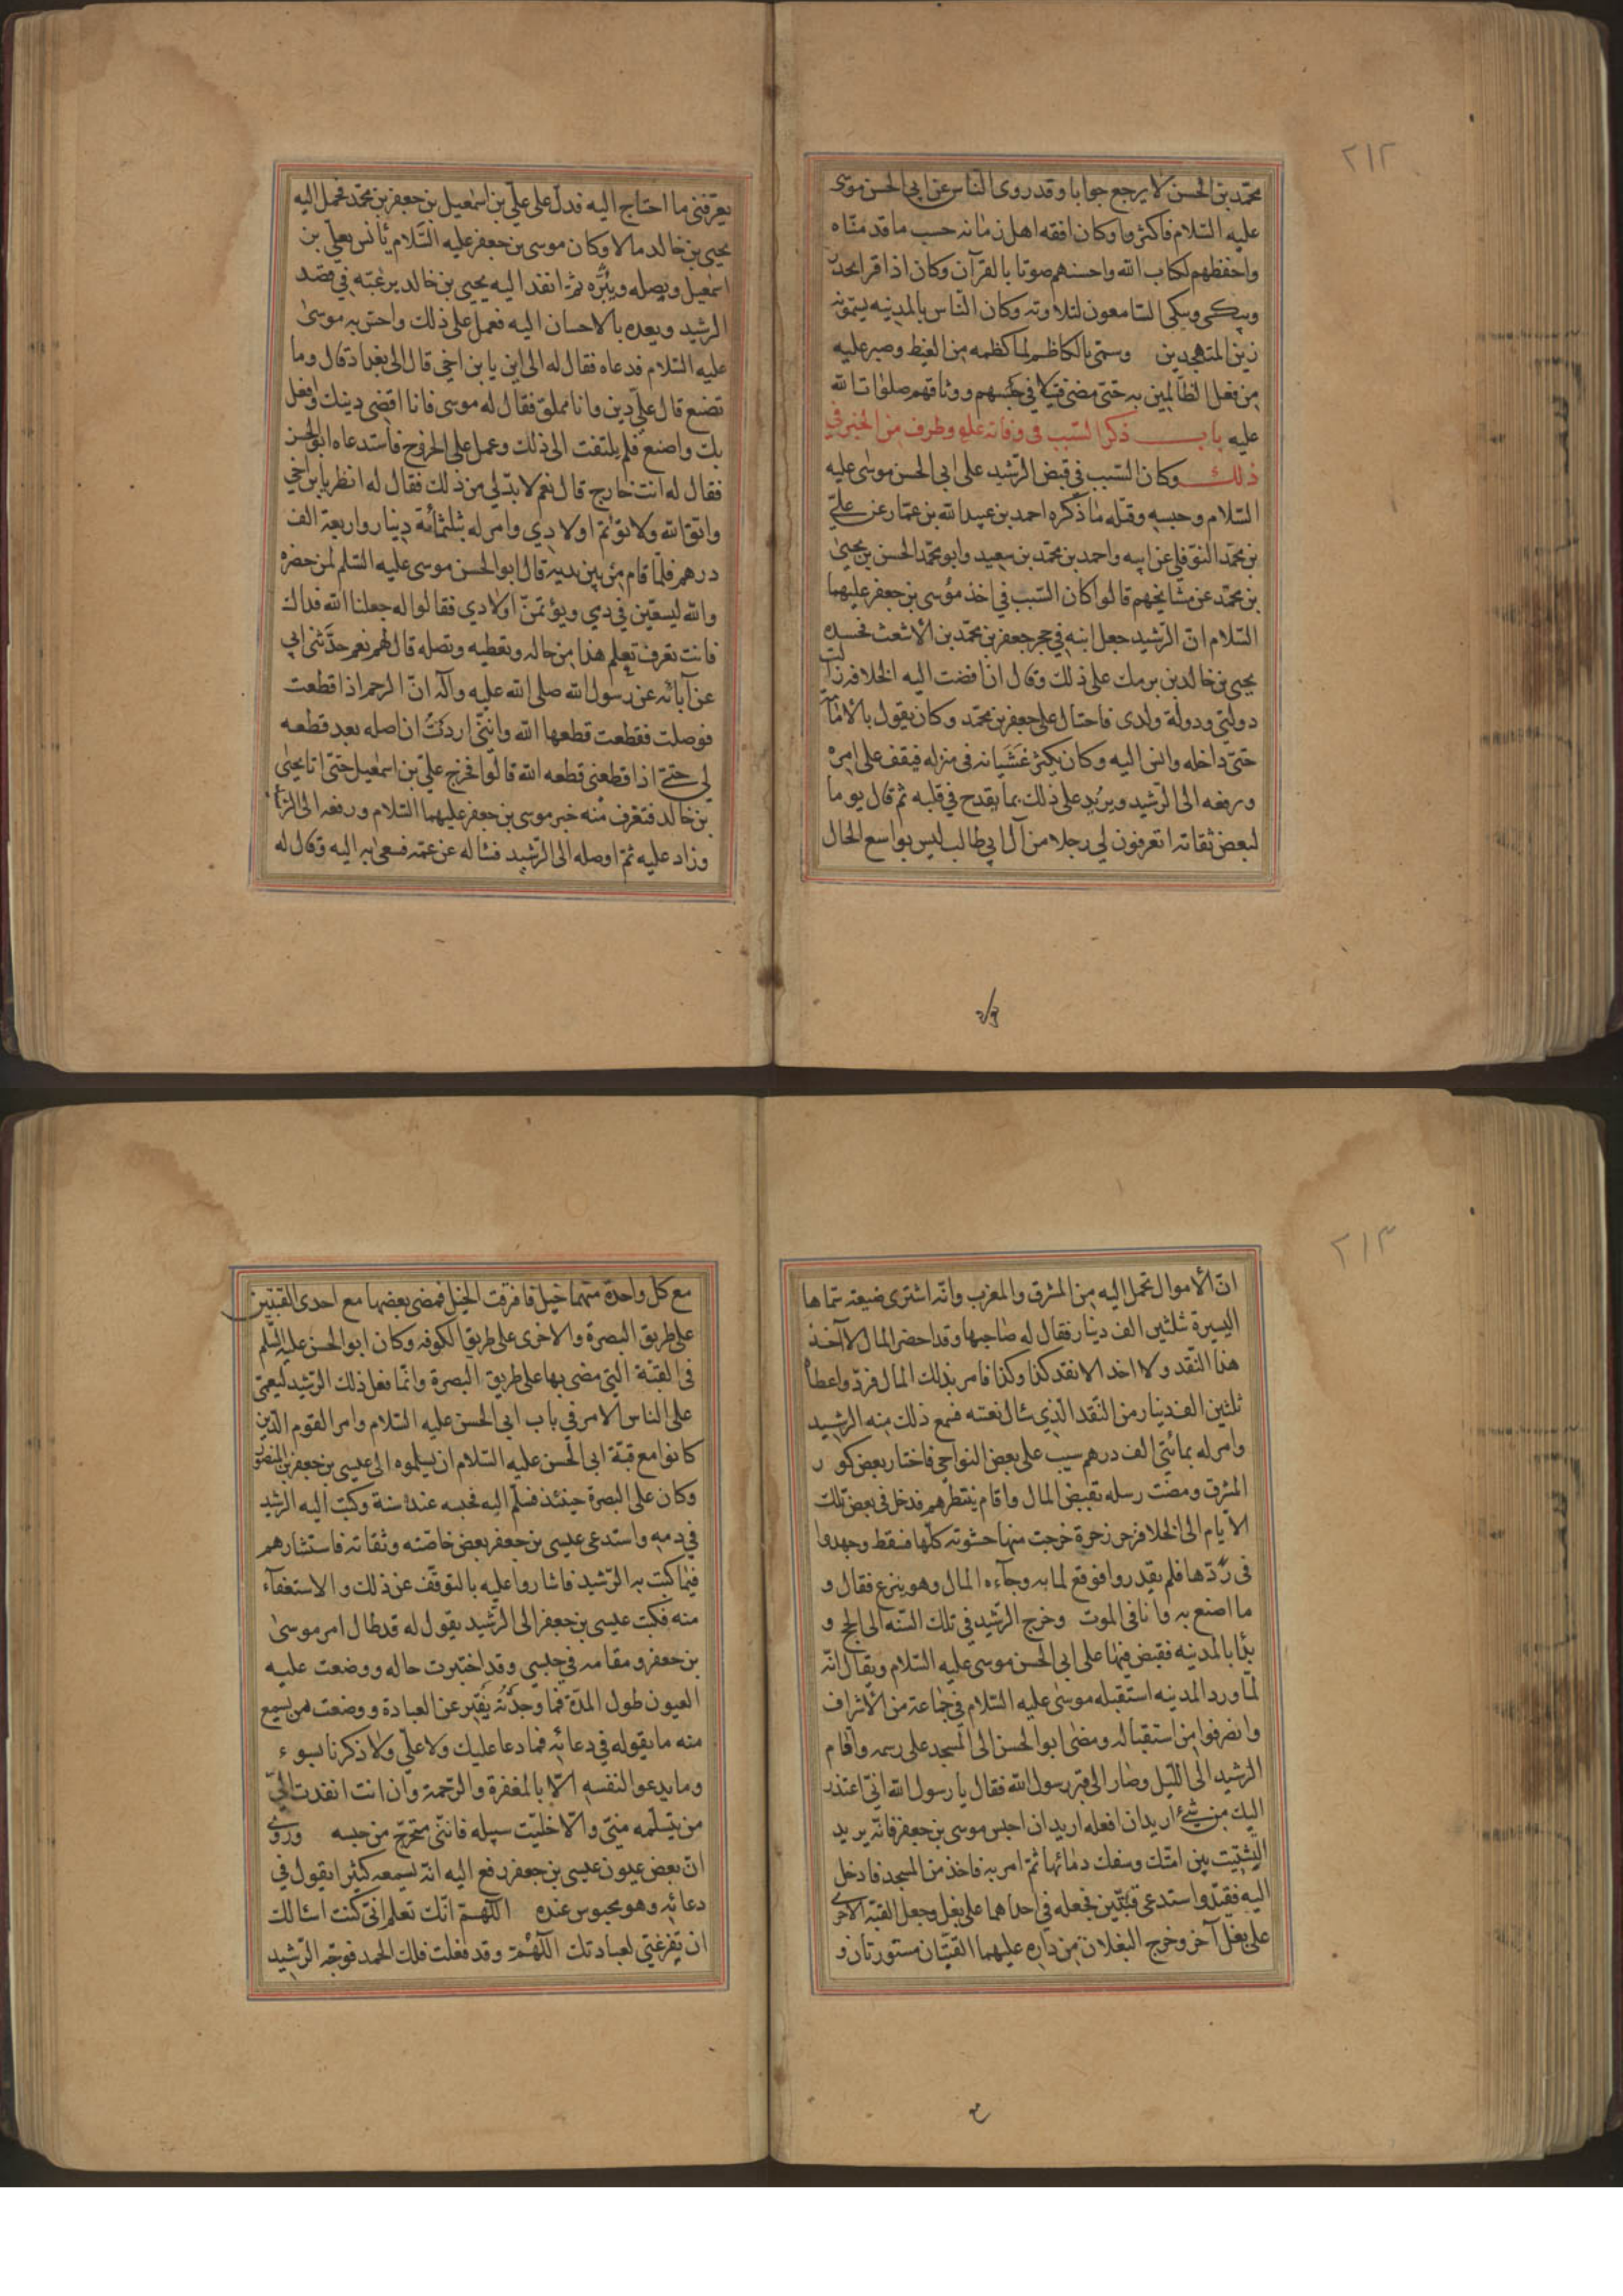 ٢١٢
محمّد بن الحسن لا يرجع جوابا وقد روى الناس عن ابى الحسن موسى
عليه السّلام فاكثروا وكان افقه اهل زمانه حسب ما قدمناه
واحفظهم لكتاب الله واحسنهم صوتا بالقرآن وكان اذا قرا يحدر
ويبكى ويبكى السّامعون لتلاوته وكان النّاس بالمدينه يسمّونه
زين المتهجدين وسمّى بالكاظم لما كظمه من الغيظ وصبر عليه
من فعل الظّالمين به حتى مضى قتيلا فى حبسهم ووثاقهم صلوات الله
عليه باب ذكر السّبب فى وفاته عليه وطرف من الخبر فى
ذلك وكان السّبب فى قبض الرّشيد على ابى الحسن موسى عليه
السّلام وحبسه وقتله ما ذكره احمد بن عبيد الله بن عمّار عن علىّ
بن محمّد النّوفلى عن ابيه واحمد بن محمّد بن سعيد وابو محمّد الحسن بن يحيى
بن محمّد عن مشايخهم قالوا كان السّبب فى اخذ موسى بن جعفر عليهما
السّلام انّ الرّشيد جعل ابنه فى حجر جعفر بن محمّد بن الاشعث فحسده
يحيى بن خالد بن برمك على ذلك وقال ان افضت اليه الخلافه زالت
دولتى ودولة ولدى فاحتال على جعفر بن محمّد وكان يقول بالامامة
حتىّ داخله وانس اليه وكان يكثر غشيانه فى منزله فيقف على امره
ويرفعه الى الرّشيد ويزيد على ذلك بما يقدح فى قلبه ثم قال يوما
لبعض ثقاته اتعرفون لى رجلا من آل ابى طالب ليس بواسع الحال
يعرّفنى ما احتاج اليه فدلّ على علىّ بن اسمعيل بن جعفر بن محمّد فحمل اليه
يحيى بن خالد مالا وكان موسى بن جعفر عليه السّلام يأنس بعلى بن
اسمعيل ويصله ويبرّه ثمّ انفذ اليه يحيى بن خالد يرغبّه فى قصد
الرشيد ويعده بالاحسان اليه فعمل على ذلك واحسّ به موسى
عليه السّلام فدعاه فقال له الى اين يا بن اخى قال الى بغداد قال وما
تصنع قال علىّ دين وانا مملق فقال له موسى فانا اقضى دينك وافعل
بك واصنع فلم يلتفت الى ذلك وعمل على الخروج فاستدعاه ابو الحسن
فقال له انت خارج قال نعم لا بدّ لى من ذلك فقال له انظر يا بن اخى
واتق الله ولا تؤتم اولادى وامر له بثلثمائة دينار واربعة الف
درهم فلمّا قام من بين يديه قال ابو الحسن موسى عليه السّلم لمن حضره
والله ليسعّين فى دمى ويؤتمنّ اولادى فقالوا له جعلنا الله فداك
فانت تعرف تعلم هذا من حاله وتعطيه وتصله قال لهم نعم حدّثنى ابى
عن آبائه عن رسول الله صلى الله عليه وآله انّ الرحم اذا قطعت
فوصلت فقطعت قطعها الله واننّى اردتُ ان اصله بعد قطعه
لى حتىّ اذا قطعنى قطعه الله قالوا فخرج علىّ بن اسمعيل حتى اتا يحيى
بن خالد فتعرف منه خبر موسى بن جعفر عليهما السّلام ورفعه الى الرّشيد
وزاد عليه ثمّ اوصله الى الرّشيد فسأله عن عمّه فسعى به اليه وقال له
٢١٣
انّ الأموال تحمل اليه من المشرق والمغرب وانّه اشترى ضيعة سمّاها
اليسيرة بثلثين الف دينار فقال له صاحبها وقد احضر المال لا آخذ
هذا النّقد ولا اخذ الا نقد كذا وكذا فامر بذلك المال فردّ واعطاه
ثلثين الف دينار من النّقد الّذى سأل بعينه فسمع ذلك منه الرشيد
وامر له بمائتى الف درهم سبب على بعض النواحى فاختار بعض كور
المشرق ومضت رسله بقبض المال واقام ينتظرهم فدخل فى بعض تلك
الأيام الى الخلا فزحر زحرة خرجت منها حشوته كلّها فسقط وجهدوا
فى ردّها فلم يقدروا فوقع لما به وجآءه المال وهو ينزع فقال و
ما اصنع به وانا فى الموت وخرج الرّشيد فى تلك السّنه الى الحج و
بدأ بالمدينه فقبض فيها على ابى الحسن موسى عليه السّلام ويقال انّه
لمّا ورد المدينه استقبله موسى عليه السّلام فى جماعة من الأشراف
وانصرفوا من استقباله ومضى ابو الحسن الى المسجد على رسمه واقام
الرّشيد الى اللّيل وصار الى قبر رسول الله فقال يا رسول الله انىّ اعتذر
اليك من شىء اريد ان افعله اريد ان احبس موسى بن جعفر فانّه يريد
التّشتيت بين امّتك وسفك دمائها ثمّ امر به فاخذ من المسجد فادخل
اليه فقيّده واستدعى قبّتين فجعله فى احداهما على بغل وجعل القبّة الاخرى
على بغل آخر وخرج البغلان من داره عليهما القبّتان مستورتان و
مع كل واحدة منهما خيل فافرقت الخيل فمضى بعضها مع احدى القبّتين
على طريق البصرة والاخرى على طريق الكوفه وكان ابو الحسن عليه السّلم
فى القبّة التى مضى بها على طريق البصرة وانّما فعل ذلك الرّشيد ليعمّى
على الناس الامر فى باب ابى الحسن عليه السّلام وامر القوم الّذين
كانوا مع قبّة ابى الحسن عليه السّلام ان يسلّموه الى عيسى بن جعفر بن المنصور
وكان على البصرة حينئذ فسلّم اليه فحبسه عنده سنة وكتب اليه الرّشيد
فى دمه واستدعى عيسى بن جعفر بعض خاصّته وثقاته فاستشارهم
فيما كتب به الرّشيد فاشاروا عليه بالتوقّف عن ذلك والاستعفآء
منه فكتب عيسى بن جعفر الى الرّشيد يقول له قد طال امر موسى
بن جعفر ومقامه فى حبسى وقد اختبرت حاله ووضعت عليه
العيون طول المدّة فما وجدّته يفتر عن العبادة ووضعت من يسمع
منه ما يقوله فى دعائه فما دعا عليك ولا علىّ ولا ذكرنا بسوء
وما يدعو النفسه الّا بالمغفرة والرّحمة وان انت انفذت الىّ
من يتسلّمه منىّ والّا خليّت سبيله فانّنى متحرّج من حبسه وروى
انّ بعض عيون عيسى بن جعفر رفع اليه انّه يسمعه كثيرا يقول فى
دعائه وهو محبوس عنده اللّهمّ انّك تعلم انىّ كنت اسألك
ان تفرغنى لعبادتك اللّهمّ وقد فعلت فلك الحمد فوجّه الرّشيد